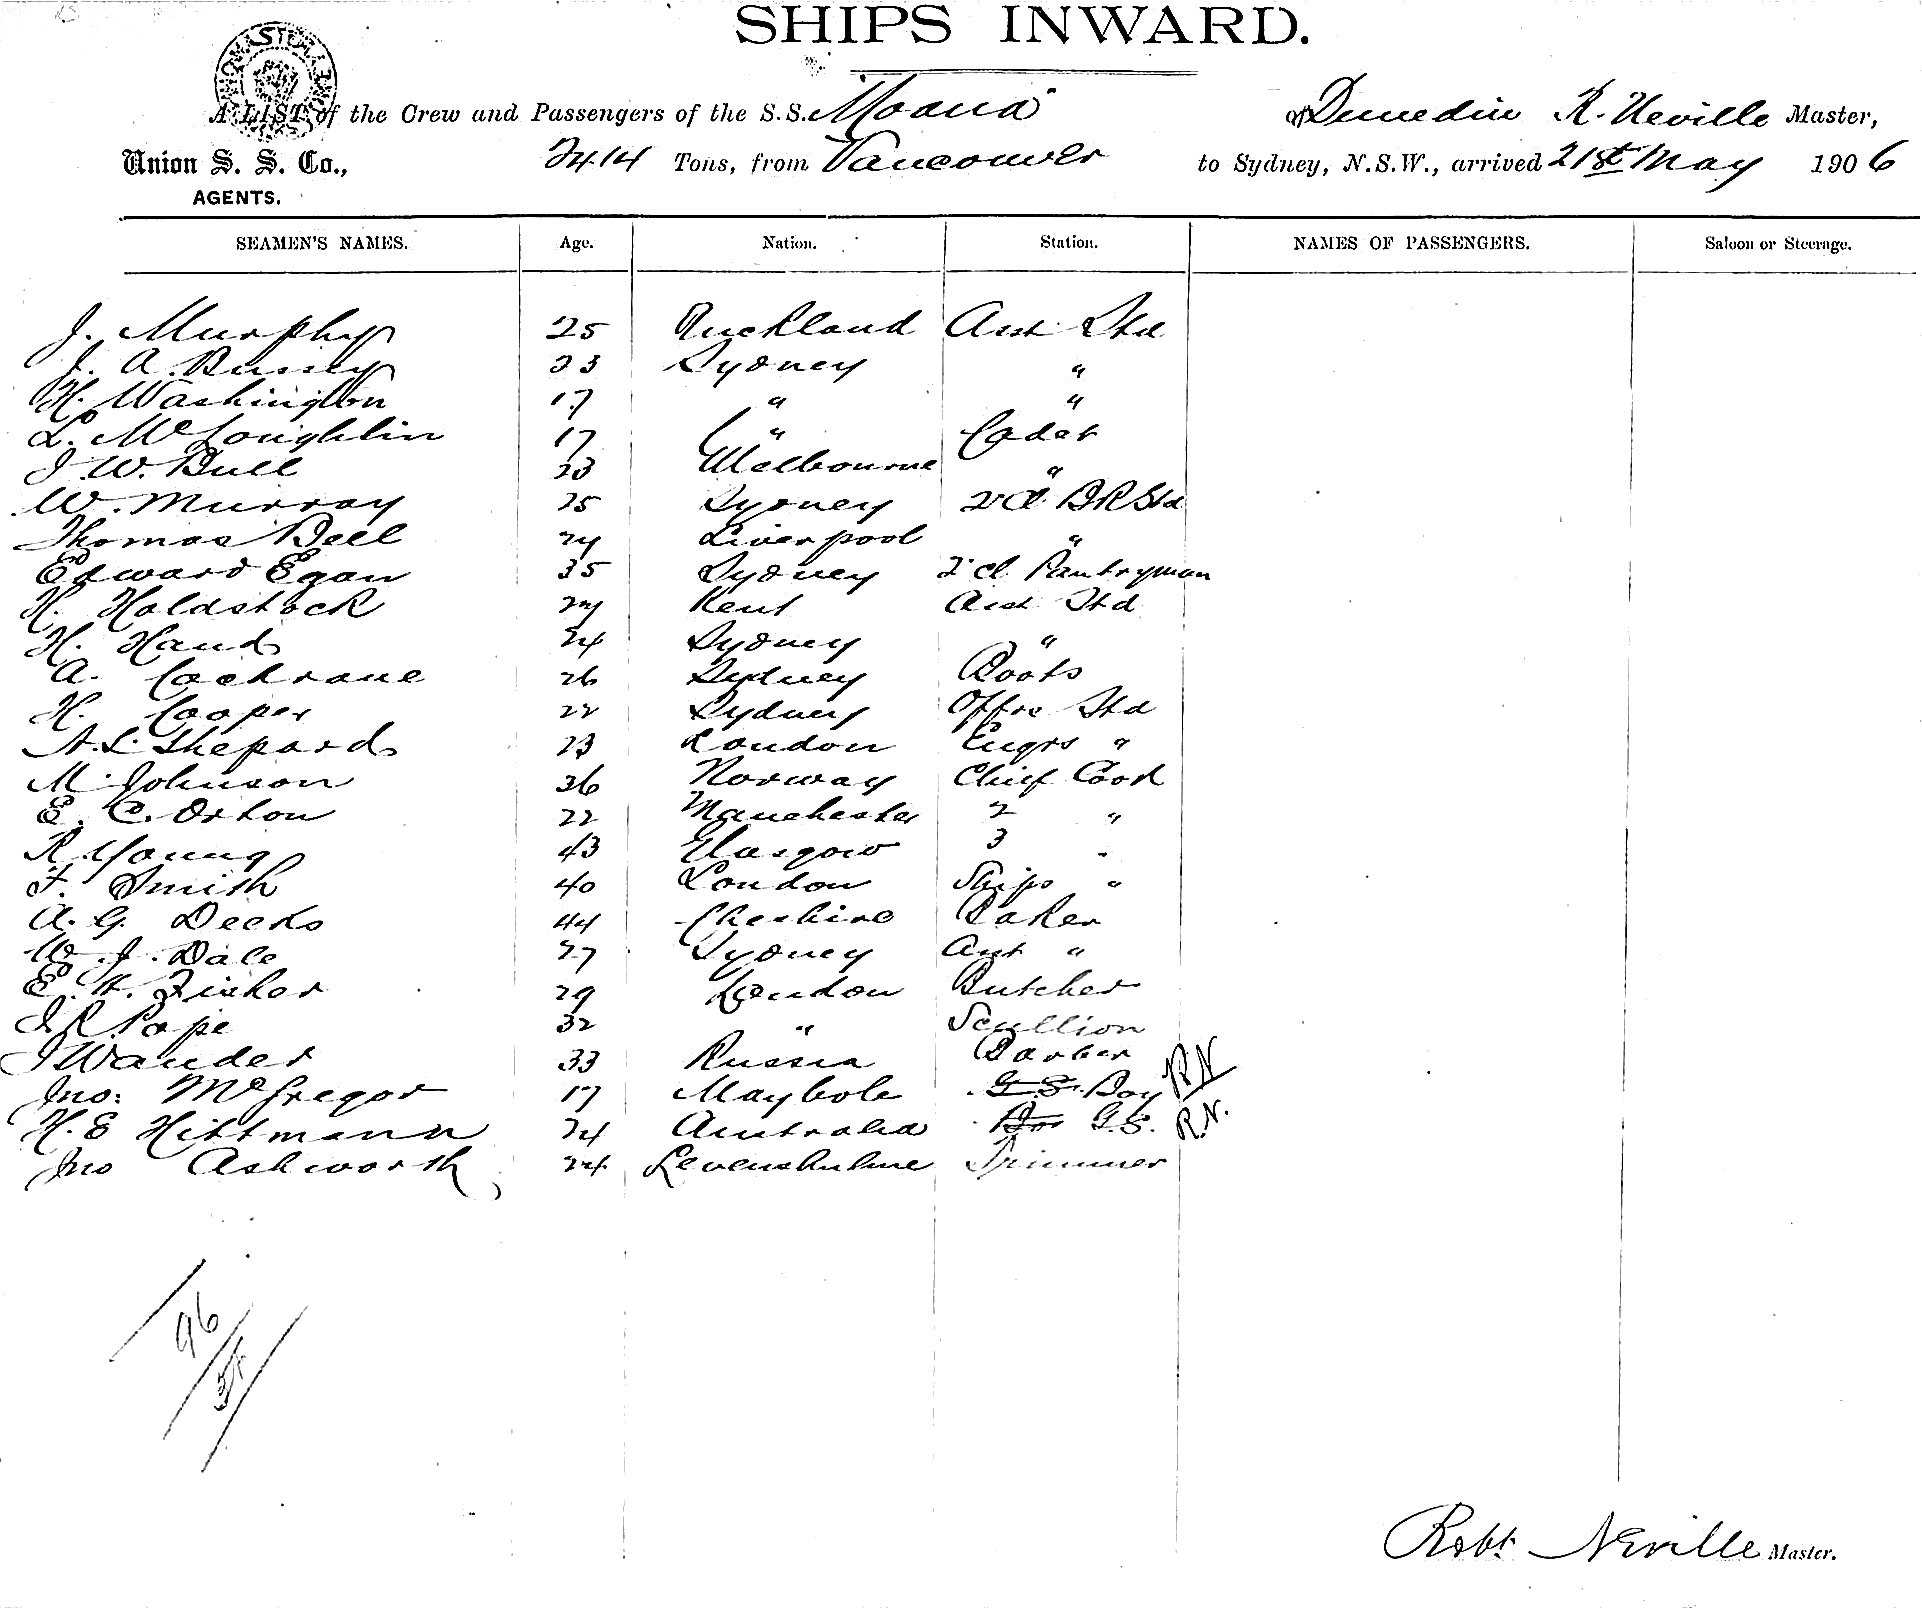 SHIPS INWARD.
A LIST of the Crew and Passengers of the S.S. Moana of Dunedin R. Neville Master,
Union S. S. Co., 2414 Tons, from Vancouver to Sydney, N.S.W., arrived 21st May 1906
AGENTS.
SEAMEN'S NAMES. Age. Nation. Station. NAMES OF PASSENGERS. Saloon or Steerage.
J. Murphy 25 Auckland Asst Std
J. A. 23 Sydney "
H. Washington 17 " "
L. McLoughlin 17 " Cadet
J W. Bull 23 Melbourne "
W. Murray 25 Sydney 2 Cl. B R Std
Thomas Bell 24 Liverpool "
Edward Egan 35 Sydney 2 cl. Pantryman
H. Holdstock 24 Kent Asst Std
H. Hand 24 Sydney "
A. Cochrane 26 Sydney Boots
H. Cooper 22 Sydney Offrs Std
A. L. Shepard 23 London Engrs "
M Johnson 36 Norway Chief Cook
E. C. Orton 22 Manchester 2 "
R Young 43 Glasgow 3 "
F. Smith 40 London Ships "
A. G. Deeks 44 Cheshire Baker
W. J. Dale 27 Sydney Asst "
E. H. Fisher 29 London Butcher
J R Pope 32 " Scullion
J Wander 33 Russia Barber
Jno: McGregor 17 Maybole G.S. Boy RN
H. E Hittmann 24 Australia Boy G.S. R.N.
Jno Ashworth 24 Levenshulme Trimmer
96
Robt Neville Master.